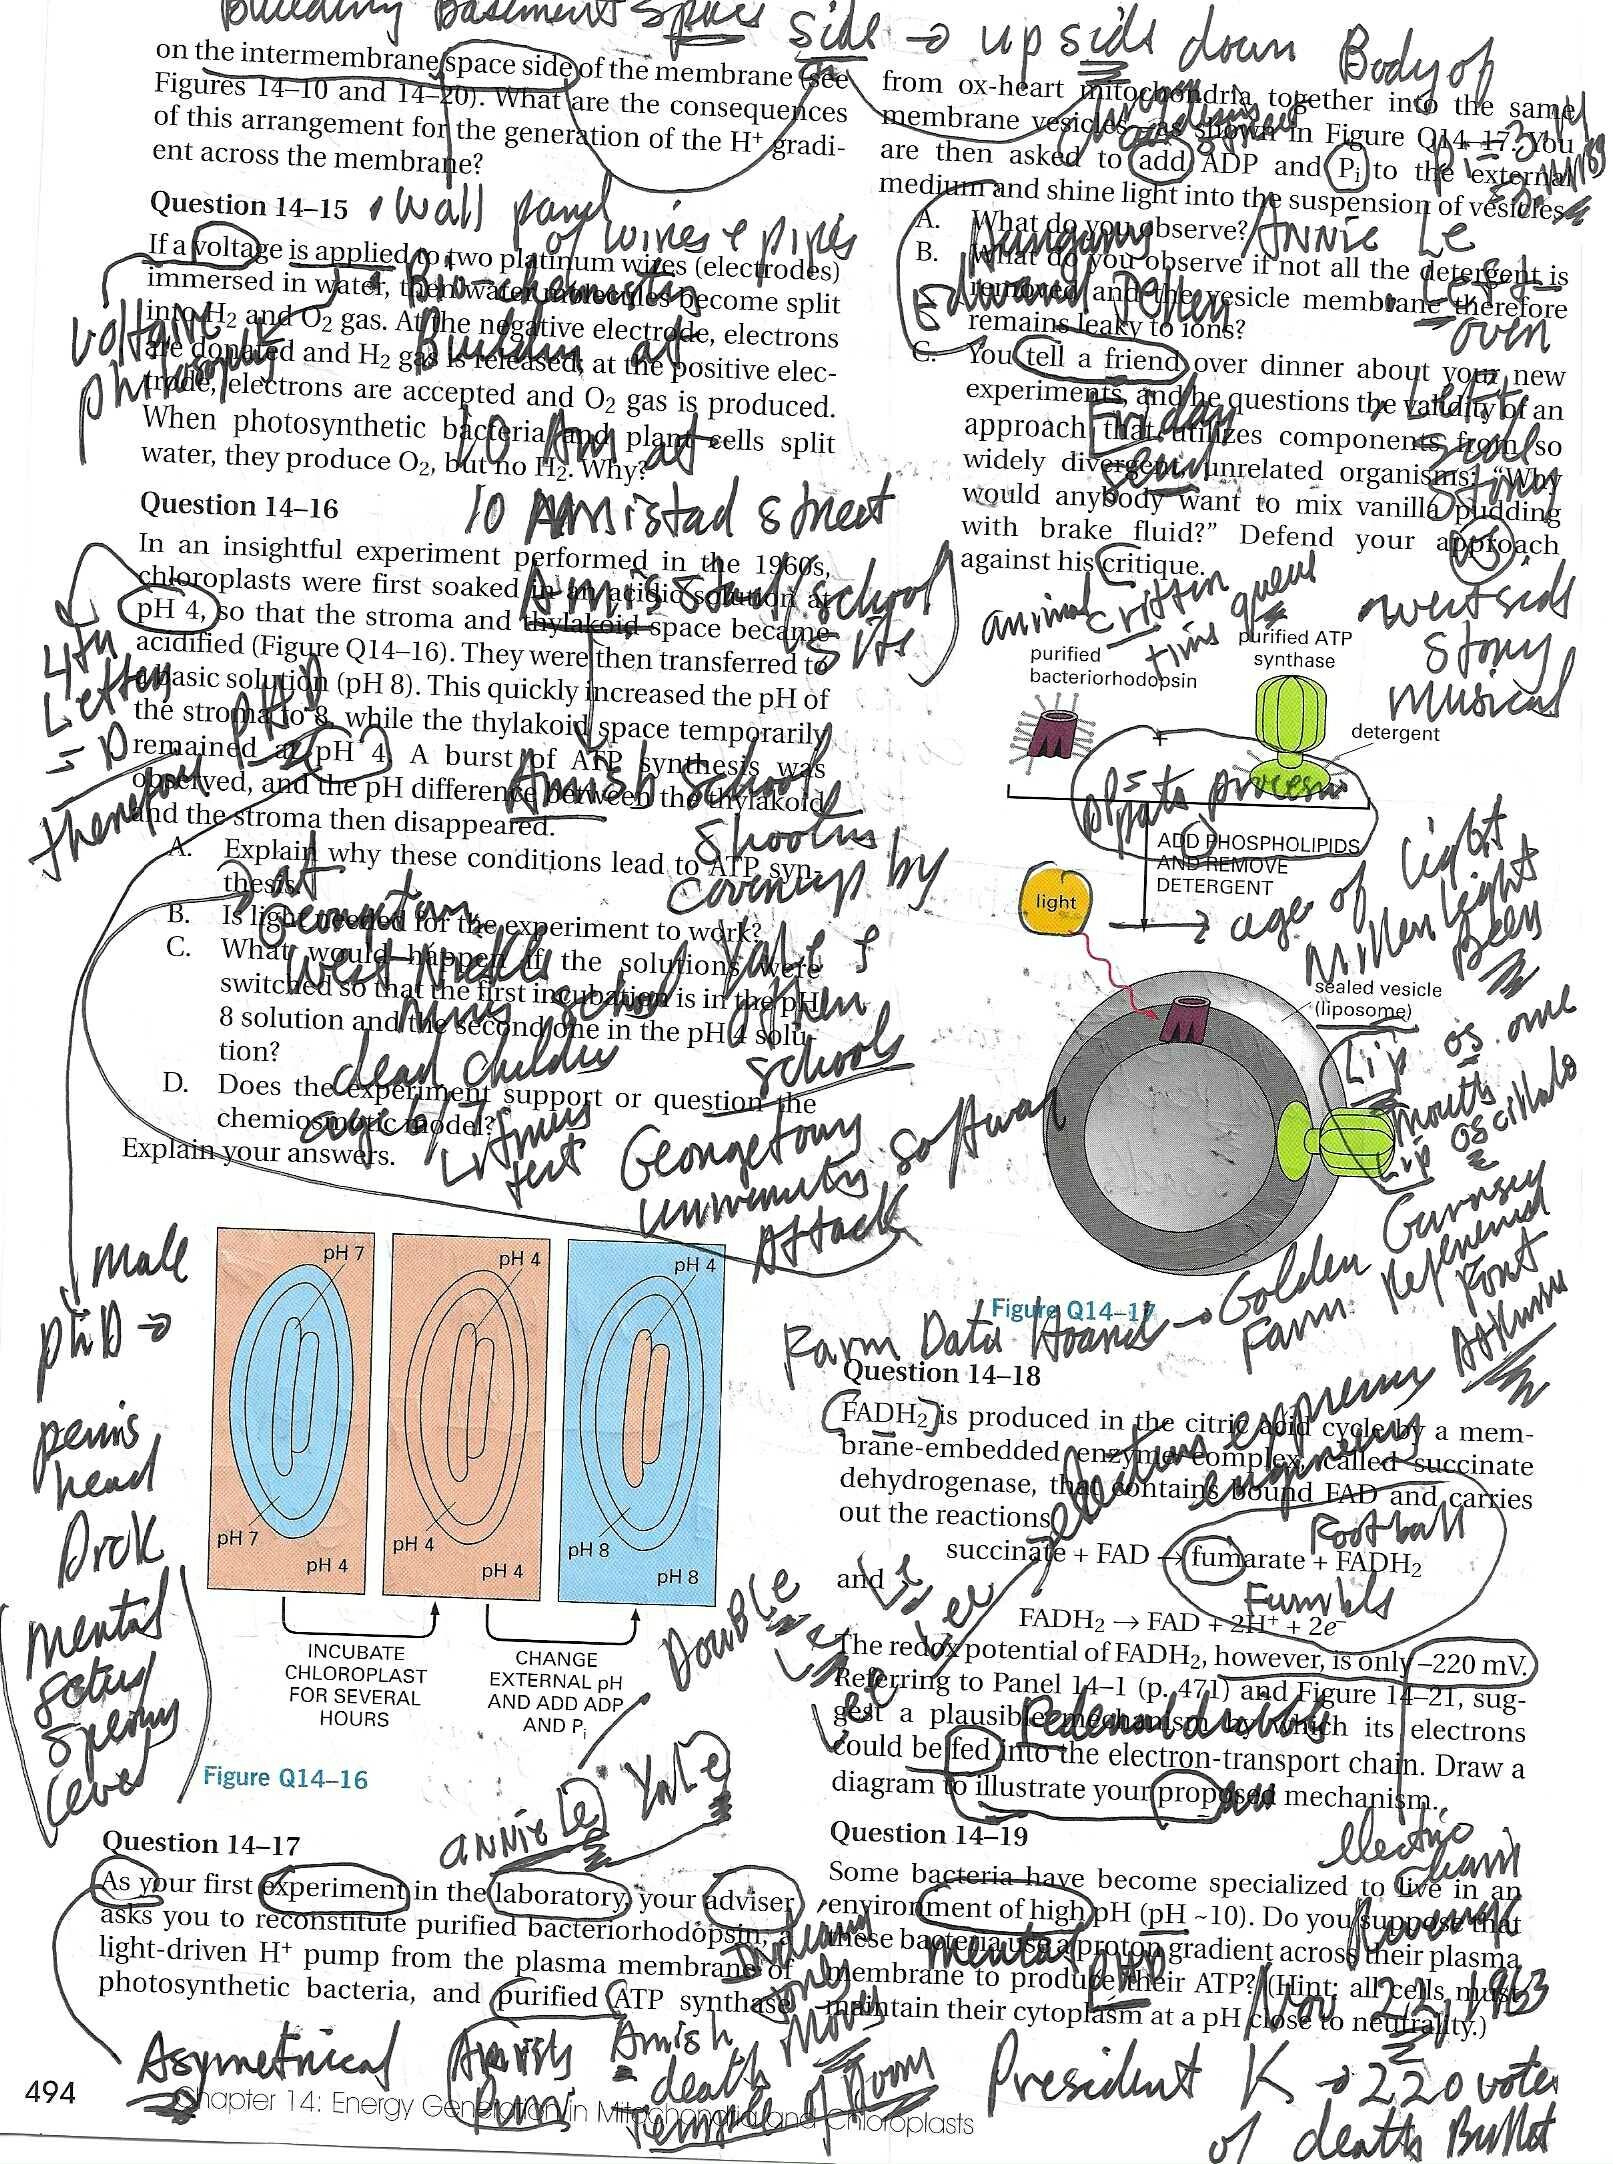 Building Basement Space side → upside down Body of
on the intermembrane space side of the membrane (see
Figures 14–10 and 14–20). What are the consequences
of this arrangement for the generation of the H⁺ gradi-
ent across the membrane?
Question 14–15
wall panel
of wires & pipes
If a voltage is applied to two platinum wires (electrodes)
immersed in water, then water molecules become split
into H₂ and O₂ gas. At the negative electrode, electrons
are donated and H₂ gas is released; at the positive elec-
trode, electrons are accepted and O₂ gas is produced.
When photosynthetic bacteria and plant cells split
water, they produce O₂, but no H₂. Why?
Bio-chemistry
Building at
voltaire
philosophy
10 Am at
10 Amistad street
Question 14–16
In an insightful experiment performed in the 1960s,
chloroplasts were first soaked in an acidic solution at
pH 4, so that the stroma and thylakoid space became
acidified (Figure Q14–16). They were then transferred to
a basic solution (pH 8). This quickly increased the pH of
the stroma to 8, while the thylakoid space temporarily
remained at pH 4. A burst of ATP synthesis was
observed, and the pH difference between the thylakoid
and the stroma then disappeared.
A. Explain why these conditions lead to ATP syn-
thesis.
B. Is light needed for the experiment to work?
C. What would happen if the solutions were
switched so that the first incubation is in the pH
8 solution and the second one in the pH 4 solu-
tion?
D. Does the experiment support or question the
chemiosmotic model?
Explain your answers.
Amistad school
site
4th
Letter
= D
PHD
therefore
Amish school
shooting
coverup by
at
Georgetown
West Nickle
Mines school
Yale &
other
schools
dead children
age 6/7
Litmus
test
Georgetown
university software
Attack
male
PhD →
penis
head
Dick
mental
setup
sperm
level
pH 7
pH 7
pH 4
pH 4
pH 4
pH 4
pH 4
pH 8
pH 8
INCUBATE
CHLOROPLAST
FOR SEVERAL
HOURS
CHANGE
EXTERNAL pH
AND ADD ADP
AND Pᵢ
Figure Q14–16
Double
Le
Lee
Annie Le
YaLe
Question 14–17
As your first experiment in the laboratory, your adviser
asks you to reconstitute purified bacteriorhodopsin, a
light-driven H⁺ pump from the plasma membrane of
photosynthetic bacteria, and purified ATP synthase
Indiana
Jones
Movy
Asymetrical
Amish
= death
temple of Doom
494
Chapter 14: Energy Generation in Mitochondria and Chloroplasts
from ox-heart mitochondria together into the same
membrane vesicles—as shown in Figure Q14–17. You
are then asked to add ADP and Pᵢ to the external
medium and shine light into the suspension of vesicles.
A. What do you observe?
B. What do you observe if not all the detergent is
removed and the vesicle membrane therefore
remains leaky to ions?
C. You tell a friend over dinner about your new
experiments, and he questions the validity of an
approach that utilizes components from so
widely divergent, unrelated organisms: “Why
would anybody want to mix vanilla pudding
with brake fluid?” Defend your approach
against his critique.
Pi = 3.14
Annie Le
Hungary
Edward Teller
Left
over
Friday
send
Left
side
story
west side
story
musical
animal
critter
purified
bacteriorhodopsin
purified ATP
synthase
detergent
+
process
ADD PHOSPHOLIPIDS
AND REMOVE
DETERGENT
light
→ age of light
Miller Light
Beer
sealed vesicle
(liposome)
Lip os ome
mouth
Lip oscillate
Figure Q14–17
Farm Data Hoard → Golden
Farm
Gurnsey
Question 14–18
FADH₂ is produced in the citric acid cycle by a mem-
brane-embedded enzyme complex, called succinate
dehydrogenase, that contains bound FAD and carries
out the reactions
succinate + FAD → fumarate + FADH₂
and
FADH₂ → FAD + 2H⁺ + 2e⁻
Football
Fumble
Le
Lee
The redox potential of FADH₂, however, is only –220 mV.
Referring to Panel 14–1 (p. 471) and Figure 14–21, sug-
gest a plausible mechanism by which its electrons
could be fed into the electron-transport chain. Draw a
diagram to illustrate your proposed mechanism.
electric
chair
Revenge
Question 14–19
Some bacteria have become specialized to live in an
environment of high pH (pH ~10). Do you suppose that
these bacteria use a proton gradient across their plasma
membrane to produce their ATP? (Hint: all cells must
maintain their cytoplasm at a pH close to neutrality.)
mental
PHD
Nov 22, 1963
President K → 220 votes
of death Bullet